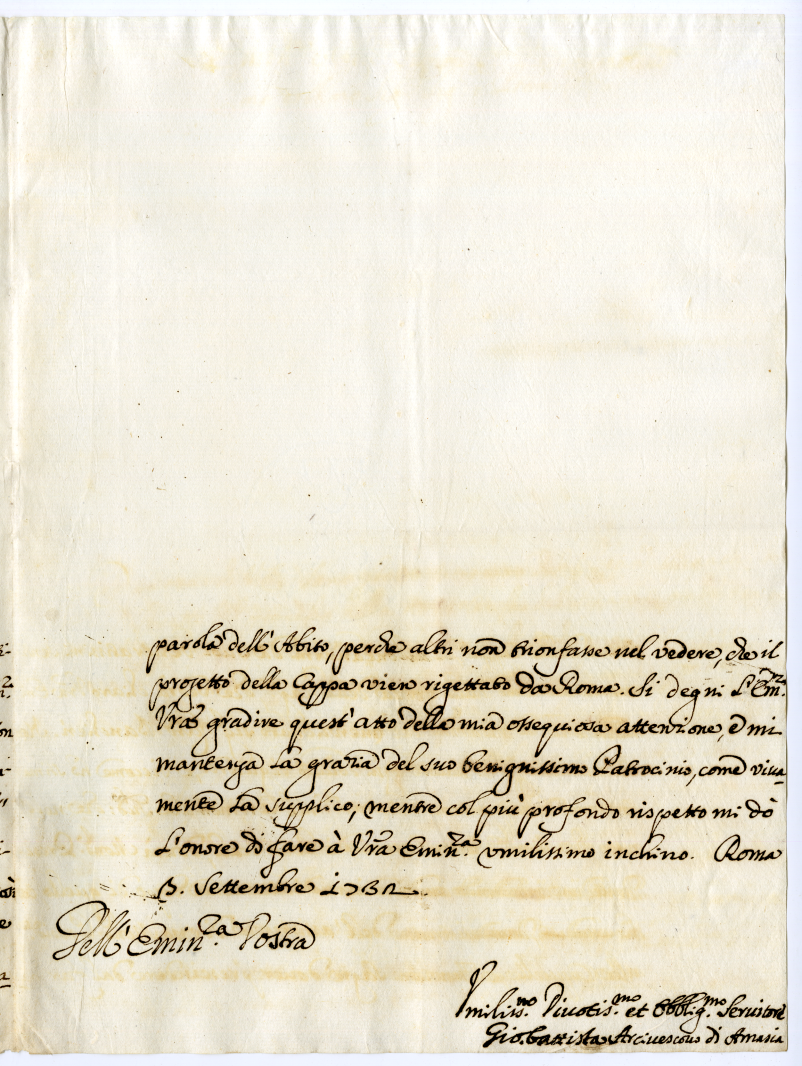 parola dell'Abito, perche altri non trionfasse nel vedere, che il
progetto della Cappa vien rigettato da Roma. Si degni L'Em.za
Vra gradire quest'atto della mia ossequiosa attenzione, e mi
mantenga La grazia del suo benignissimo Patrocinio, come viva
mente La supplico; mentre col più profondo rispetto mi dò
L'onore di fare à Vra Emin.za umilissimo inchino. Roma
3. Settembre 1732.
Dell'Emin.za Vostra
Umiliss.mo Divotis.mo et Obblig.mo Servitore
Gio: Battista Arcivescovo di Amasia